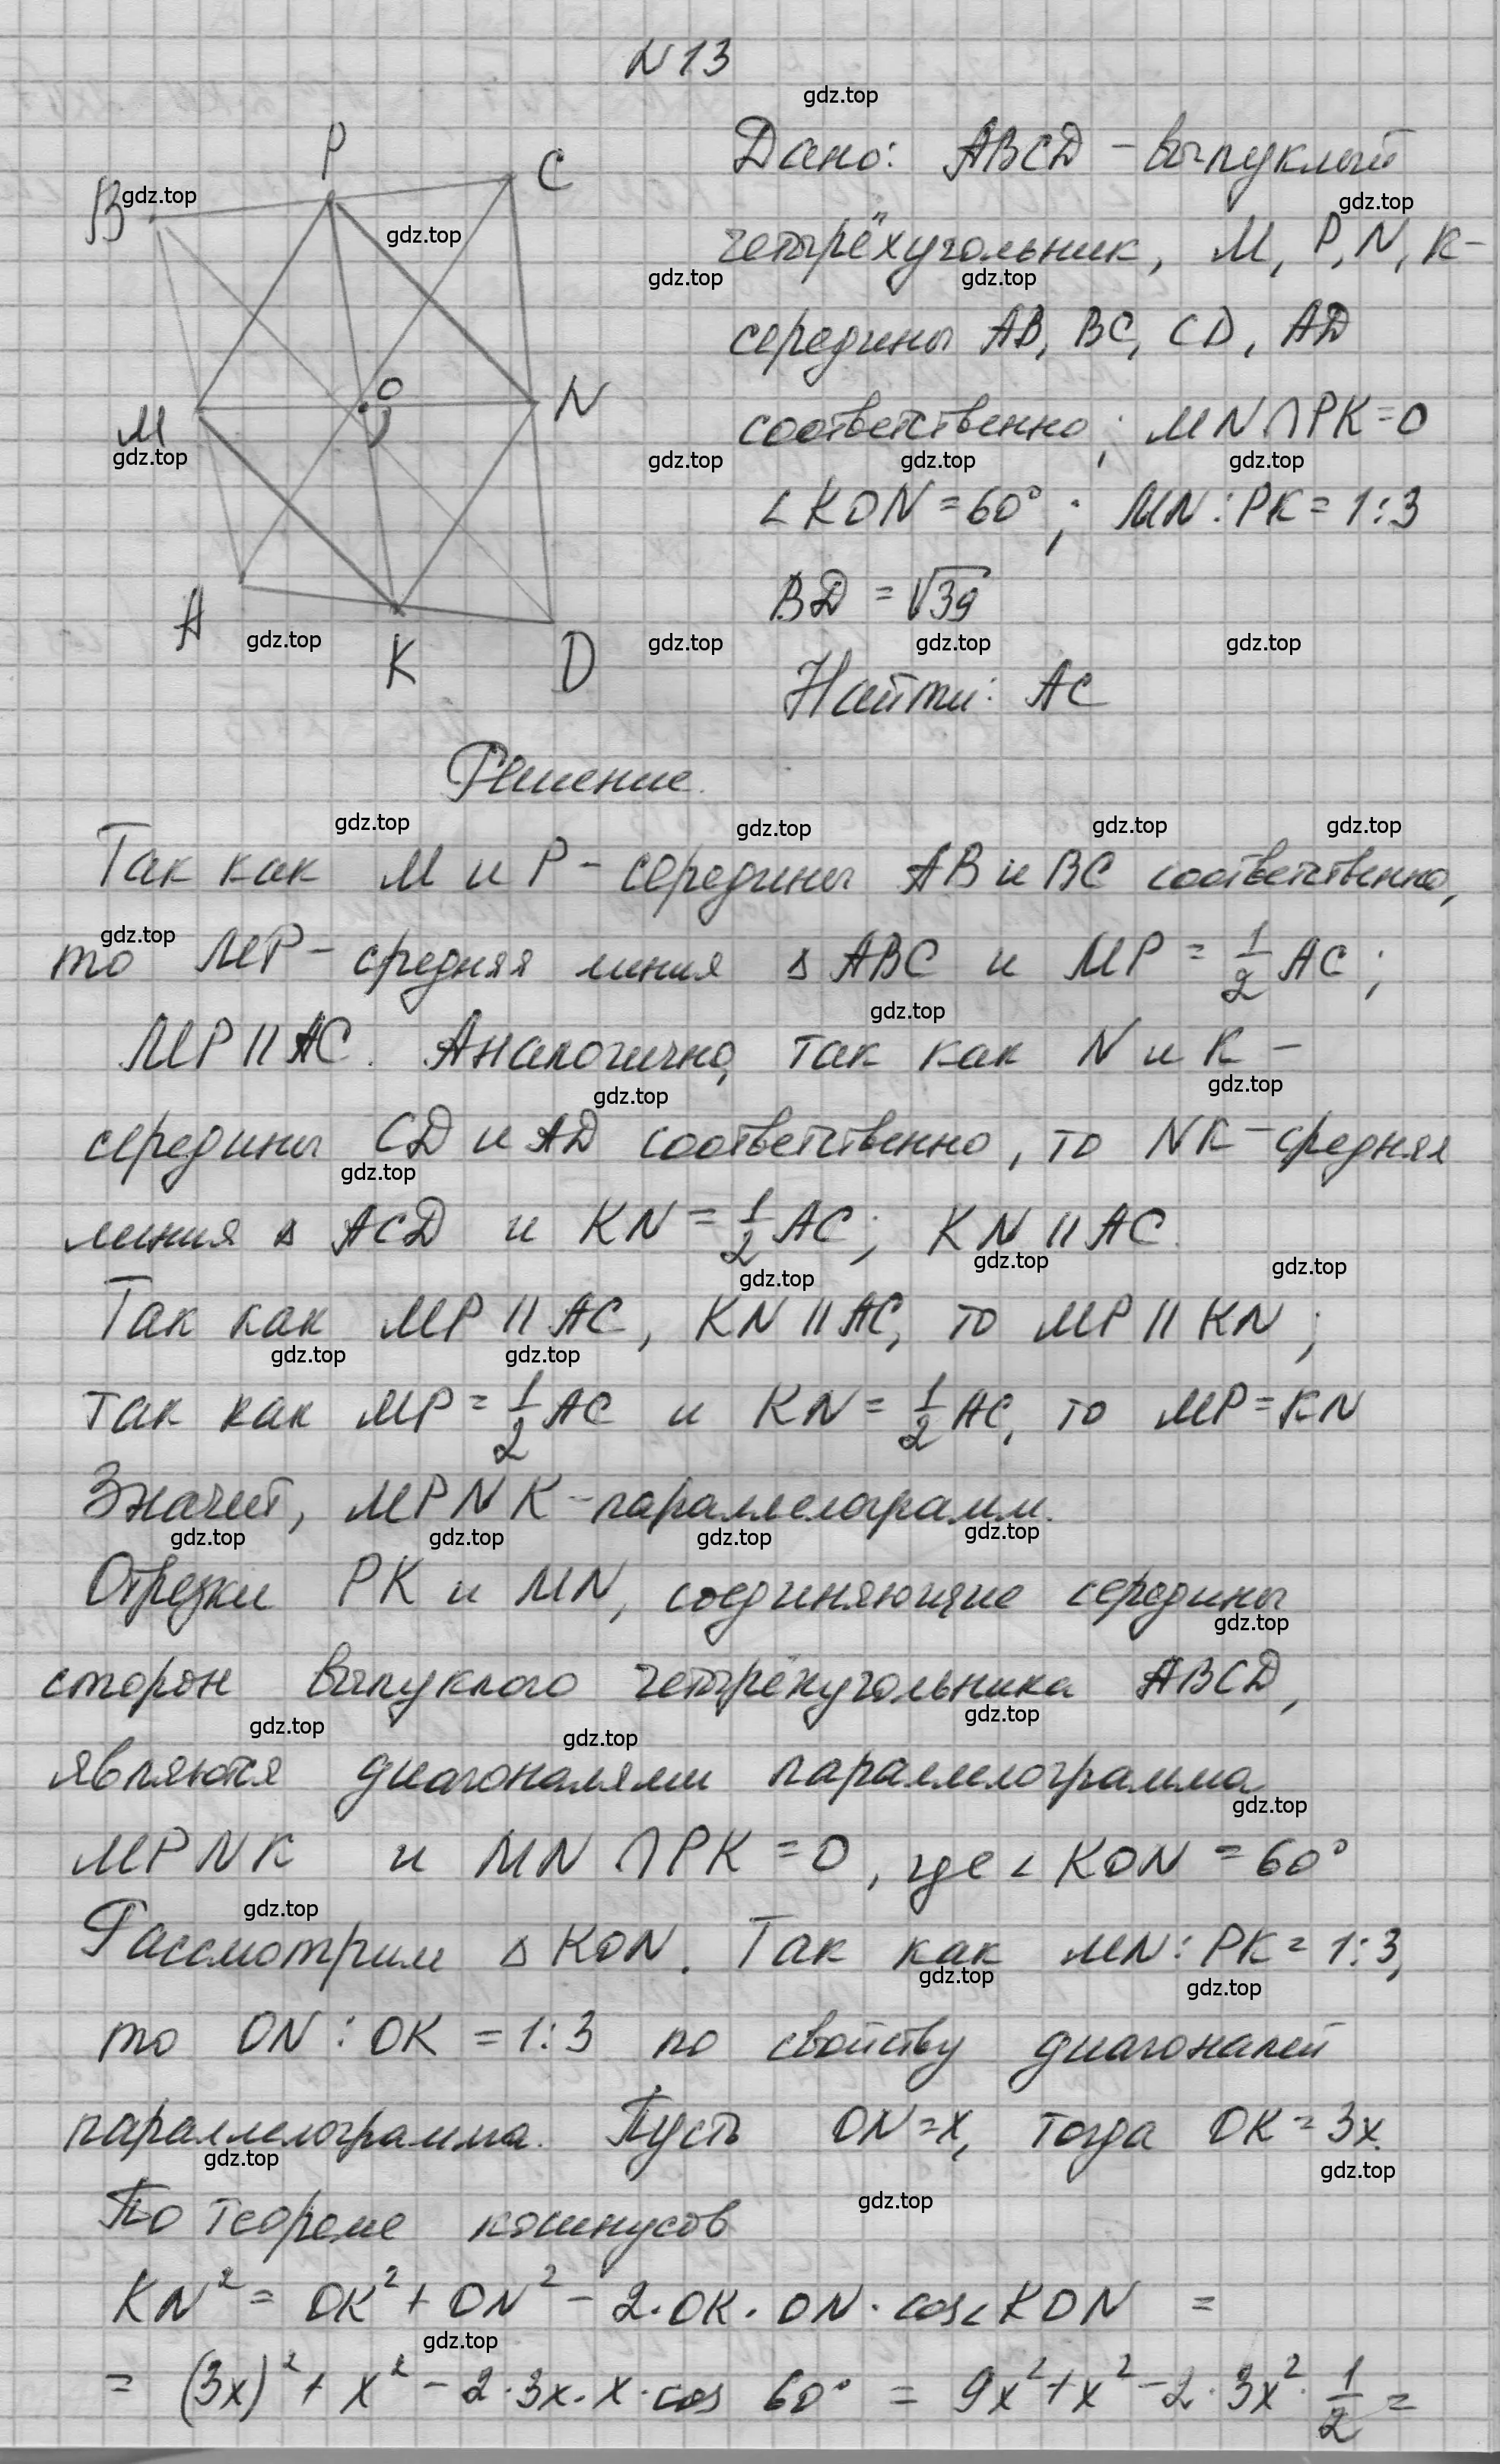 N13
Дано: ABCD - выпуклый
четырёхугольник, M, P, N, K -
середины AB, BC, CD, AD
соответственно; MN∩PK=O
∠KON=60°; MN:PK=1:3
BD=√39
Найти: AC
P
C
B
O
M
N
A
K
D
Решение.
Так как M и P - середины AB и BC соответственно,
то MP - средняя линия △ABC и MP=1/2 AC;
MP||AC. Аналогично, так как N и K -
середины CD и AD соответственно, то NK - средняя
линия △ACD и KN=1/2 AC; KN||AC.
Так как MP||AC, KN||AC, то MP||KN;
так как MP=1/2 AC и KN=1/2 AC, то MP=KN
Значит, MPNK - параллелограмм.
Отрезки PK и MN, соединяющие середины
сторон выпуклого четырёхугольника ABCD,
являются диагоналями параллелограмма
MPNK и MN∩PK=O, где ∠KON=60°
Рассмотрим △KON. Так как MN:PK=1:3,
то ON:OK=1:3 по свойству диагоналей
параллелограмма. Пусть ON=x, тогда OK=3x.
По теореме косинусов
KN²=OK²+ON²-2·OK·ON·cos∠KON=
=(3x)²+x²-2·3x·x·cos 60°=9x²+x²-2·3x²·1/2=
gdz.top